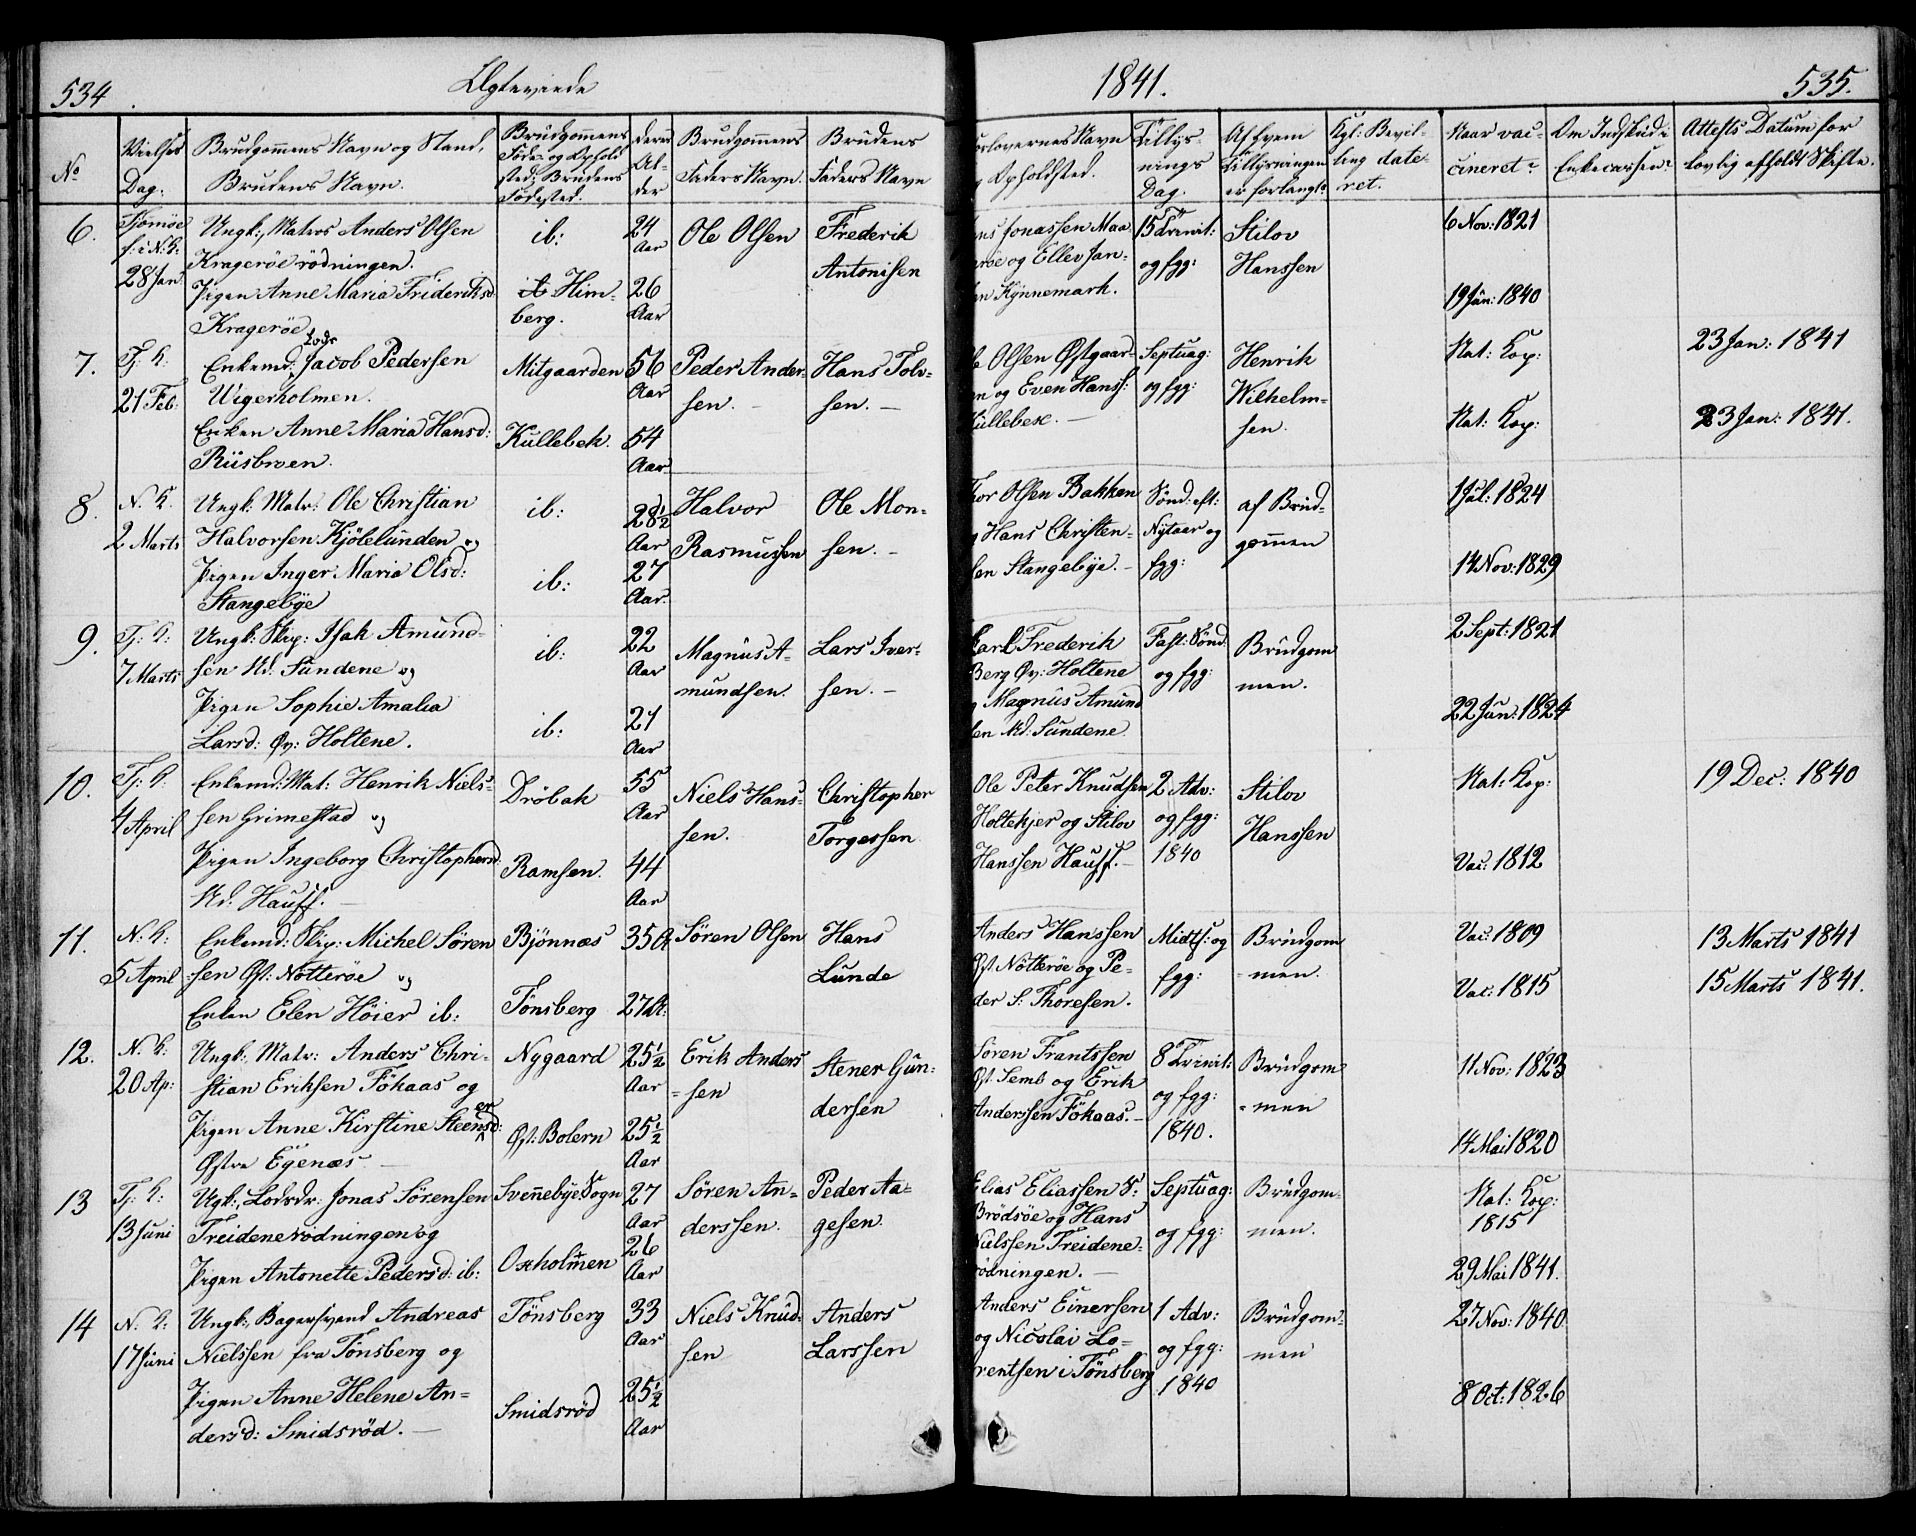 534
Ægteviede
1841.
535.
No
Vielses
Dag.
Brudgommens Navn og Stand,
Brudens Navn.
Brudgommens
Føde- og Ophold
sted; Brudens
Fødested.
deres
Al-
der
Brudgommens
Faders Navn.
Brudens
Faders Navn
orlovernes Navn
Opholdsted.
Tillys-
nings
Dag.
Af hvem
Tillysningen
er forlangt
Kgl: Bevil-
ling date-
ret.
Naar vac-
cineret
Om Indskud i
Enkecassen
Attests Datum for
lovlig afholdt Skifte.
6.
28 Jan
Ungk: Matros Anders Olsen
Kragerøe rødningen.
Pigen Anne Maria Frideriksd
Kragerøe
ib:
Him-
berg.
24
Aar
26
Aar
Ole Olsen
Frederik
Antonisen
ns Jonassen Maa
røe og Ellev Jan-
en Kynnemark.
15 Trinit:
og fgg:
Stilov
Hanssen
6 Nov: 1821
19 Jun: 1840
7.
Tj: K.
21 Feb:
Enkemd: Lods Jacob Pedersen
Wigerholmen.
Enken Anne Maria Hansd:
Riisbroen.
Mitgaarden
Kullebek.
56
Aar
54
Aar
Peder Ander-
sen. -
Hans Tolv-
sen. -
e Olsen Østgaar-
n og Even Hanss:
Kullebek. -
Septuag:
og fgg:
Henrik
Wilhelm-
sen.
Nat: Kop:
Nat: Kop:
23 Jan: 1841
23 Jan: 1841.
8.
N. K.
2 Marts
Ungk: Matr: Ole Christian
Halvorsen Kjølelunden og
Pigen Inger Maria Olsd:
Stangebye
ib:
ib:
28½
Aar
27
Aar.
Halvor
Rasmussen
Ole Mon-
sen. -
Thor Olsen Bakken
g Hans Christen-
sen Stangebye. -
Sønd: eft:
Nytaar og
fgg:
af Brud-
gommen
1 Jul: 1824
14 Nov: 1829
9.
Tj: K:
7 Marts
Ungk: Skp: Isak Amund-
sen Nd. Sundene og
Pigen Sophie Amalia
Larsd: Øv: Holtene.
ib:
ib:
22
Aar
21
Aar
Magnus A-
mundsen.
Lars Iver-
sen. -
Carl Frederik
Berg Øv: Holtene
g Magnus Amund
sen Nd. Sundene
Fast: Sønd
og fgg:
Brudgom
men.
2 Sept: 1821
22 Jun: 1824
10.
Tj: K.
4 April
Enkemd: Mat: Henrik Niels-
sen Grimestad og
Pigen Ingeborg Christophersd
Nd. Hauff.
Drøbak
Ramsen.
55
Aar
44
Aar
Niels Hans-
sen.
Christopher
Torgersen
Ole Peter Knudsen
Holtekjer og Stilov
Hanssen Hauff. -
2 Adv:
og fgg:
1840
Stilov
Hanssen
Nat: Kop:
Vac: 1812
19 Dec: 1840
11.
N. K:
5 April
Enkemd: Skp: Michel Søren
sen Øst: Nøtterøe og
Enken Elen Høier ib:
Bjønnæs
Tønsberg
35 A
27 A:
Søren Olsen
Hans
Lunde
Anders Hanssen
Øst Nøtterøe og Pe-
der S: Thoresen.
Midtf: og
fgg:
Brudgom
-men.
Vac: 1809
Vac: 1815
13 Marts 1841
15 Marts 1841.
12.
N. K:
20 Ap:
Ungk: Matr: Anders Chri-
stian Eriksen Føkaas og
Pigen Anne Kirstine Steenersd:
Østre Egenæs -
Nygaard
Øst: Bolern
25½
Aar
25½
Aar
Erik Anders
-sen
Stener Gun-
dersen
Søren Frantssen
Øst: Semb og Erik
Anderssen Føkaas. -
8 Trinit:
og fgg:
1840.
Brudgom
-men
11 Nov: 1823
14 Mai 1820
13
Tj: K:
13 Juni
Ugk: Lodsdr: Jonas Sørensen
Treidene rødningen og
Pigen Antonette Pedersd: ib:
Svennebye Sogn
Oxholmen
27
Aar
26
Aar
Søren An-
derssen.
Peder Aa-
gesen.
Elias Eliassen S:
Brødsøe og Hans
Nielssen Treidene-
rødningen. -
Septuag:
og fgg:
Brudgom-
men.
Nat: Kop:
1815
29 Mai 1841.
14
N. K:
17 Juni
Ungk: Bagersvend Andreas
Nielssen fra Tønsberg og
Pigen Anne Helene An-
dersd: Smidsrød. -
Tønsberg
Smidsrød
33
Aar
25½
Aar
Niels Knud-
sen
Anders
Larssen
Anders Einersen
og Nicolai Lo-
rentsen i Tønsberg
1 Adv:
og fgg:
1840
Brudgom-
men
27 Nov: 1840
8 Oct: 1826